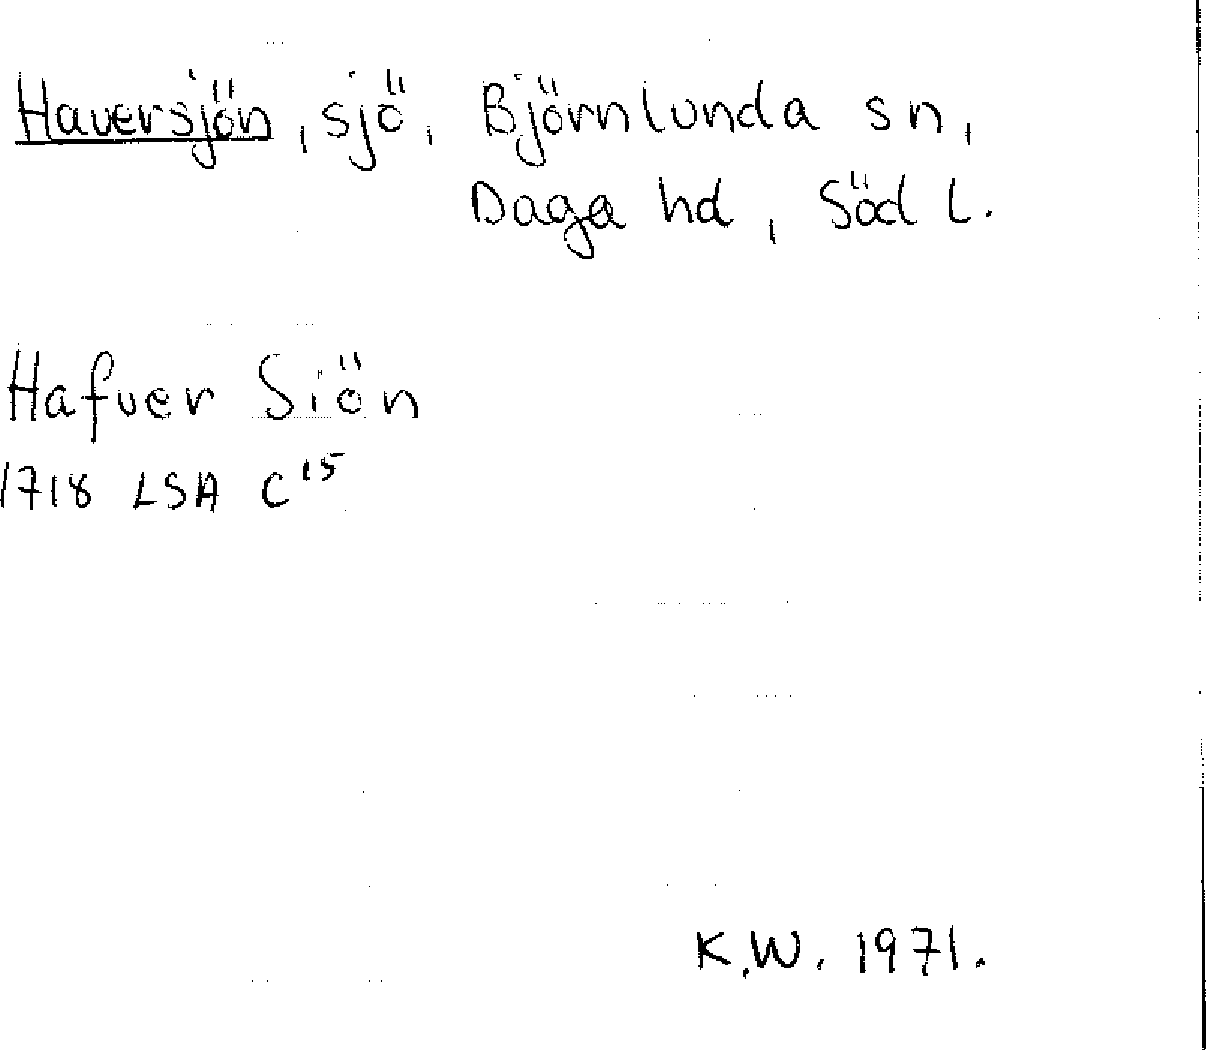 Haversjön, sjö, Björnlunda sn,
Daga hd, Söd l.
Hafver Siön
1718 LSA C15
K.W. 1971.